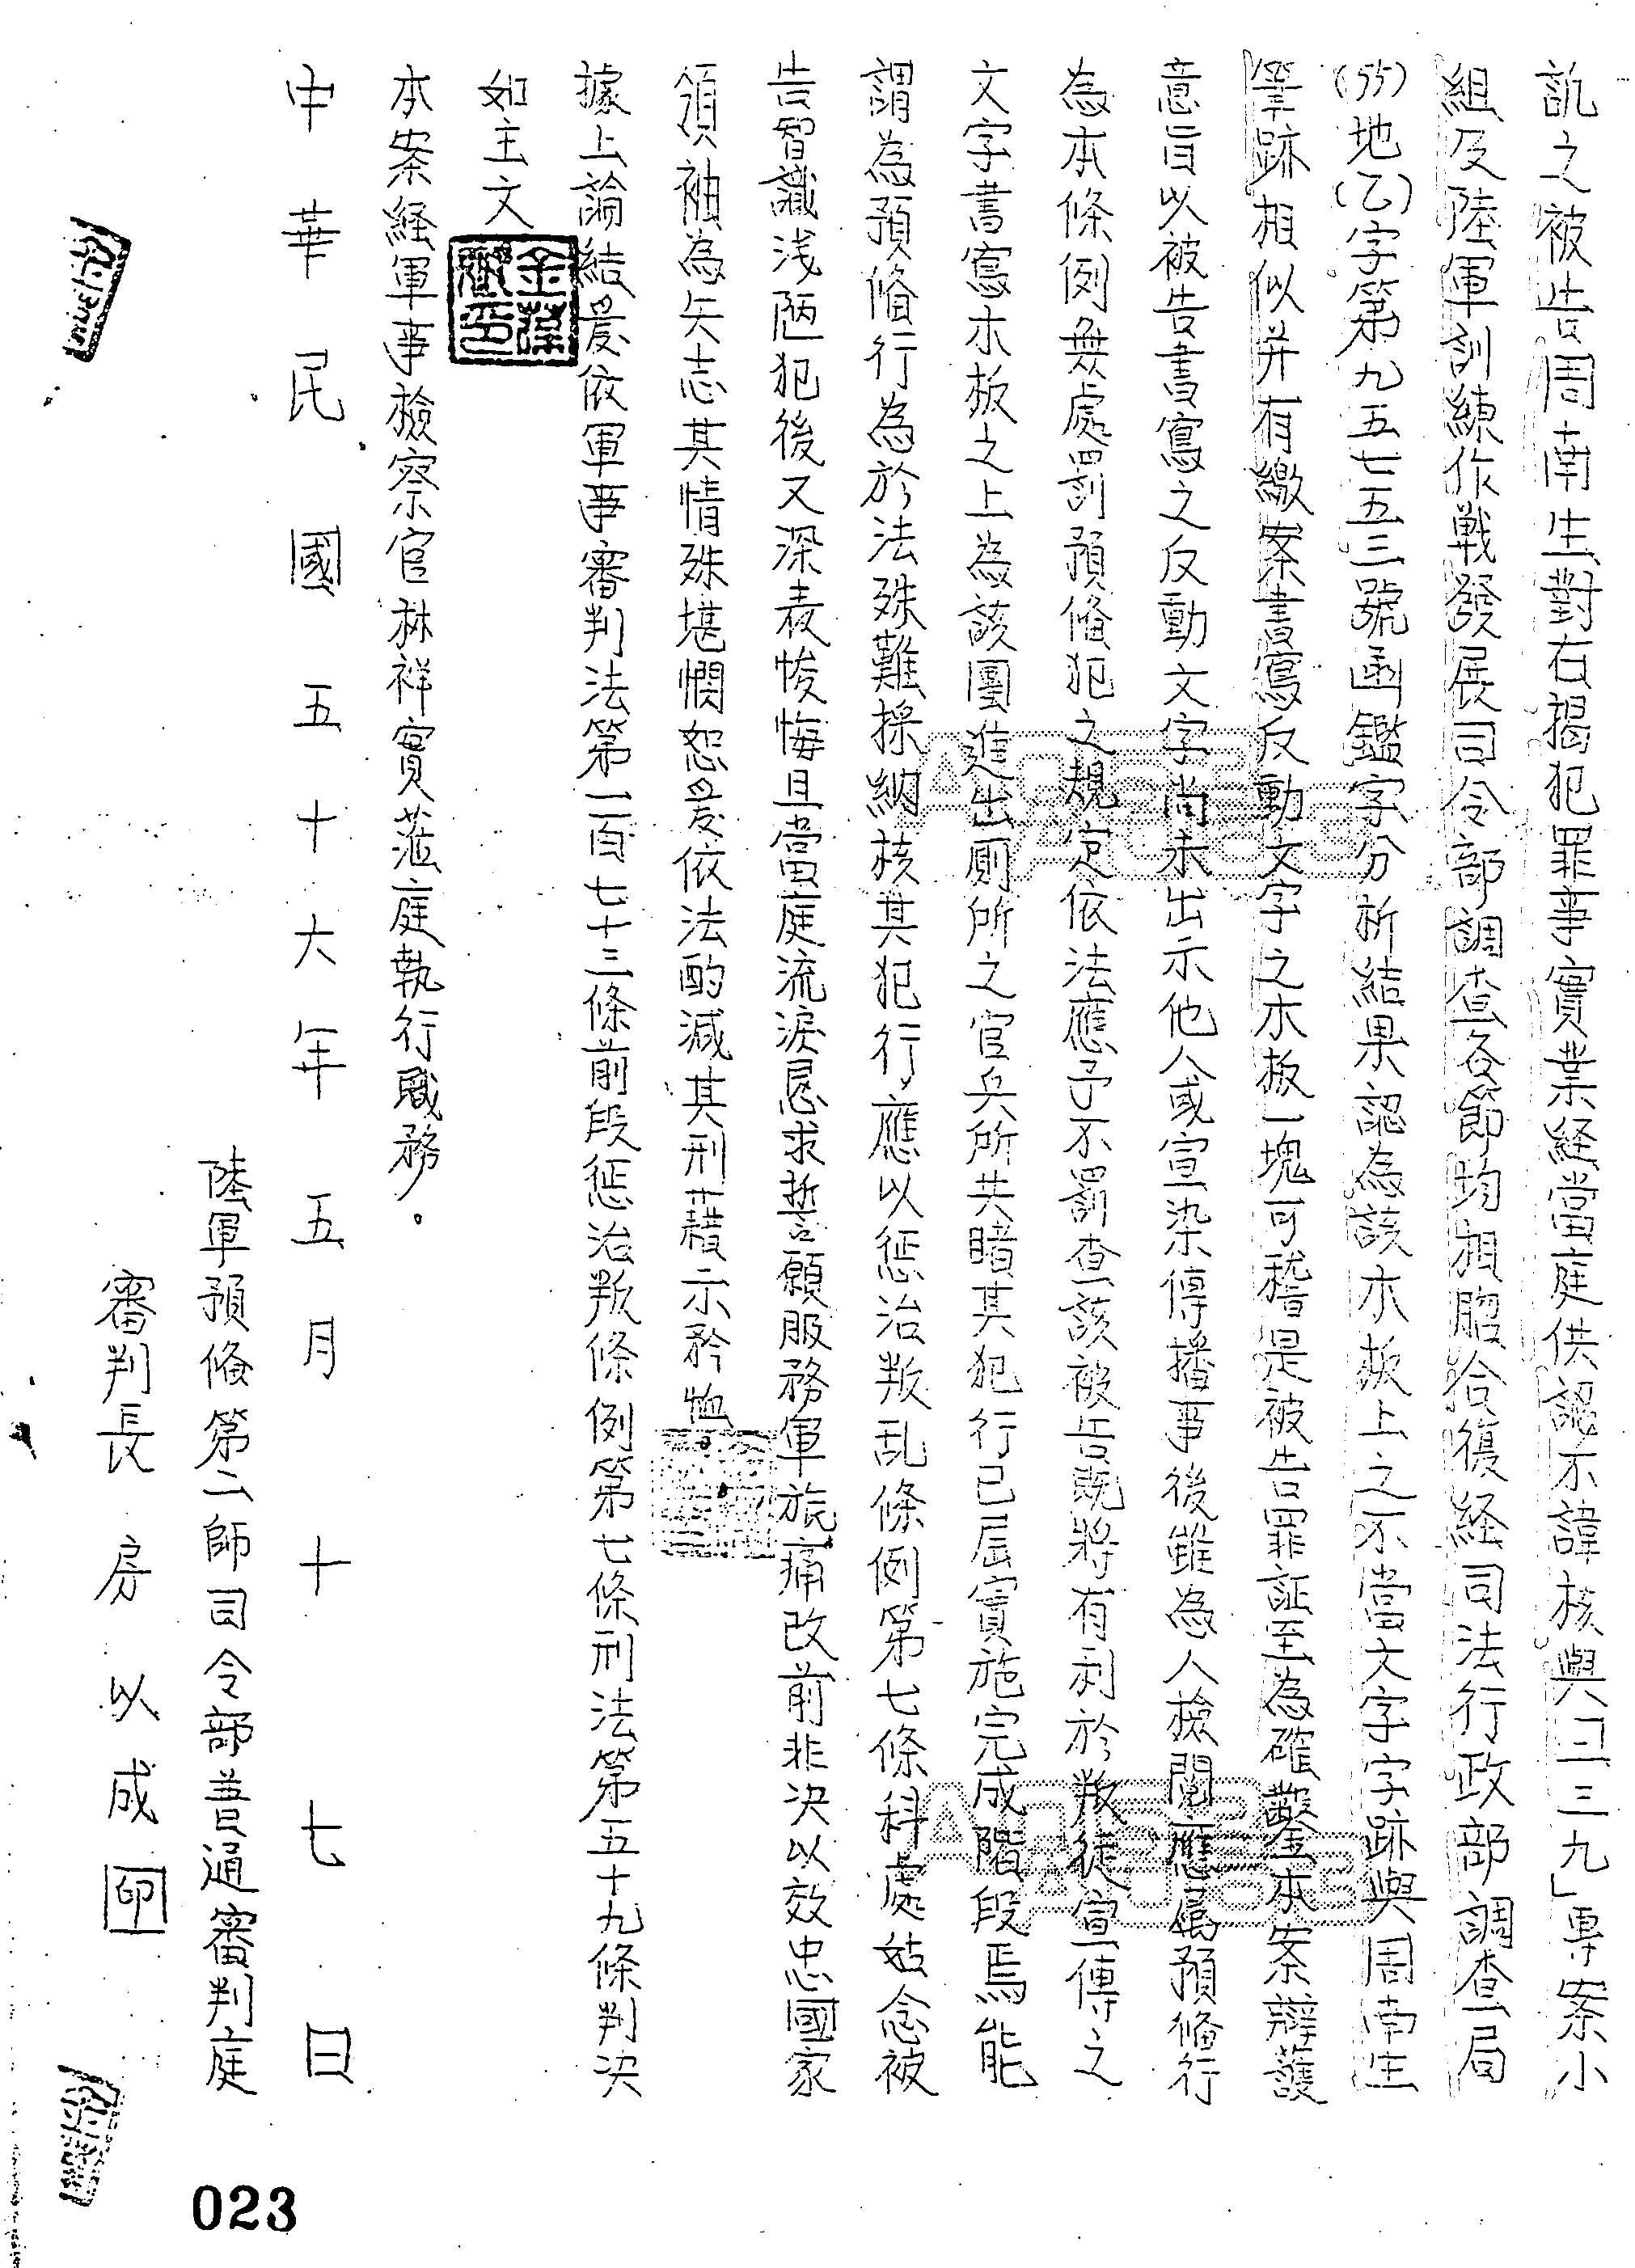 訊之被告周南生對右揭犯罪事實業経當庭供認不諱核與「二三九」專案小
組及陸軍訓練作戰發展司令部調查各節均相脗合復経司法行政部調查局
(55)地(乙)字第九五七五三號函鑑字分析結果認為該木板上之不當文字字跡與周南生
筆跡相似并有繳案書寫反動文字之木板一塊可稽是被告罪証至為確鑿本案辯護
意旨以被告書寫之反動文字尚未出示他人或宣染傳播事後雖為人檢閱應屬預備行
為本條例無處罰預備犯之規定依法應予不罰查該被告既將有利於叛徒宣傳之
文字書寫木板之上為該團進出廁所之官兵所共睹其犯行已屆實施完成階段焉能
謂為預備行為於法殊難採納核其犯行應以惩治叛乱條例第七條科處姑念被
告智識浅陋犯後又深表悛悔且當庭流淚恳求誓願服務軍旅痛改前非决以效忠國家
領袖為矢志其情殊堪憫恕爰依法酌減其刑藉示矜恤
據上論結爰依軍事審判法第一百七十三條前段惩治叛條例第七條刑法第五十九條判决
如主文
本案経軍事檢察官林祥實蒞庭執行職務。
中華民國五十六年五月十七日
陸軍預備第二師司令部普通審判庭
審判長房以成印
023